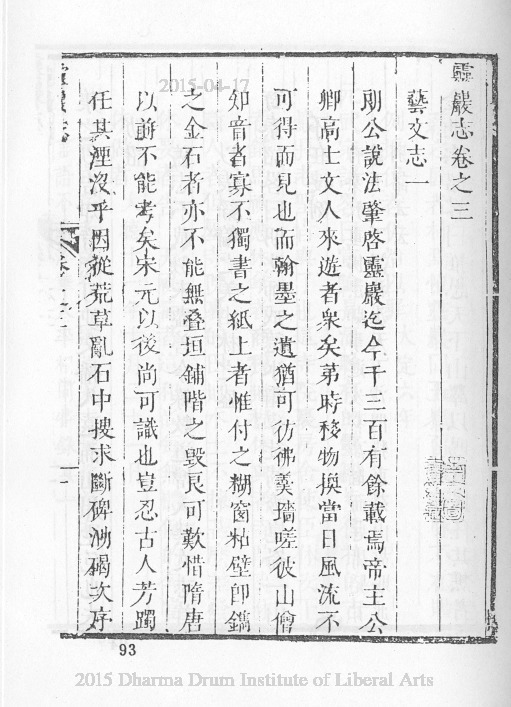 2015-04-17
靈巖志卷之三
藝文志一
朗公說法肇啓靈巖迄今千三百有餘載焉帝主公
卿高士文人來遊者衆矣第時移物換當日風流不
可得而見也而翰墨之遺猶可彷彿羹墻嗟彼山僧
知音者寡不獨書之紙上者惟付之糊窗粘壁卽鐫
之金石者亦不能無叠垣鋪階之毁良可歎惜隋唐
以前不能考矣宋元以後尚可識也豈忍古人芳躅
任其湮沒乎因從荒草亂石中搜求斷碑泐碣次序
93
2015 Dharma Drum Institute of Liberal Arts